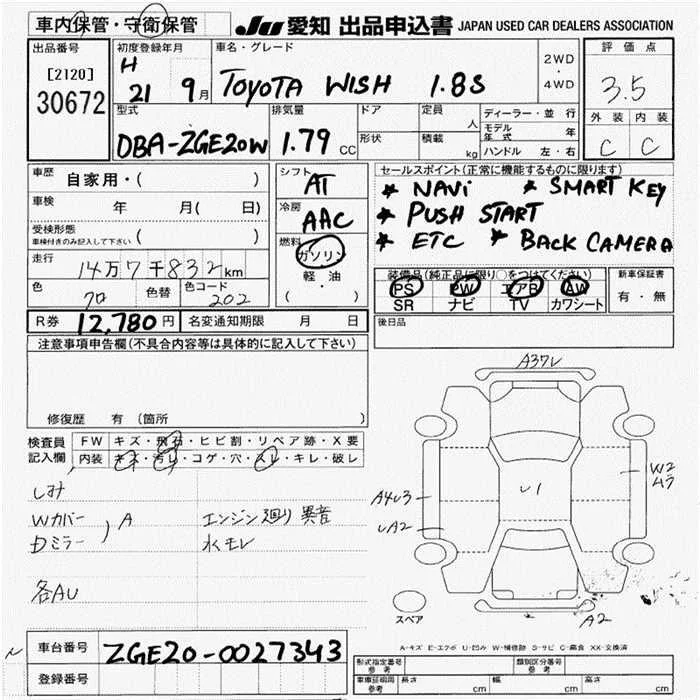 車内保管・守衛保管
JU 愛知 出品申込書 JAPAN USED CAR DEALERS ASSOCIATION
出品番号
[2120]
30672
初度登録年月
H
21 9月
車名・グレード
TOYOTA WISH 1.8S
2WD
・
4WD
評価点
3.5
外装 内装
C C
型式
DBA-ZGE20W
排気量
1.79 CC
ドア
形状
定員
人
積載
kg
ディーラー・並行
モデル年式 年
ハンドル 左・右
車歴
自家用・( )
車検
年 月( 日)
受検形態
車検付きのみ記入して下さい ( )
走行
14万7千832km
色
クロ
色替
色コード
202
シフト
AT
冷房
AAC
燃料
ガソリン
軽・油
( )
セールスポイント(正常に機能するものに限ります)
★ NAVi ★ SMART KEY
★ PUSH START
★ ETC ★ BACK CAMERA
装備品(純正品に限り○をつけてください)
PS PW エアB AW
SR ナビ TV カワシート
新車保証書
有・無
R券 12,780円
名変通知期限 月 日
後日品
注意事項申告欄(不具合内容等は具体的に記入して下さい)
修復歴 有 (箇所 )
検査員
記入欄
FW キズ・飛石・ヒビ割・リペア跡・X要
内装 キズ・汚レ・コゲ・穴・スレ・キレ・破レ
しみ
Wカバー
Dミラー ) A
エンジン廻り異音
水モレ
各AU
A37レ
W2
ムラ
U1
A4U3
UA2
スペア
A2
A-キズ E-エクボ U-凹み W-補修跡 S-サビ C-腐食 XX-交換済
車台番号
ZGE20-0027343
登録番号
形式指定番号
参考
類別区分番号
参考
車庫証明用
参考
長さ cm
幅 cm
高さ cm